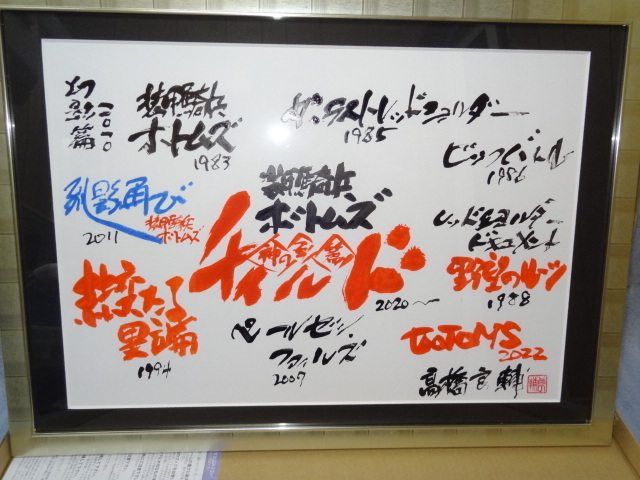 幻影篇
2010
装甲騎兵
ボトムズ
1983
ザ・ラストレッドショルダー
1985
ビッグバトル
1986
孤影再び
2011
装甲騎兵
ボトムズ
装甲騎兵
ボトムズ
チャイルド
神の子篇
2020~
レッドショルダー
ドキュメント
野望のルーツ
1988
赫奕たる
異端
1994
ペールゼン・
ファイルズ
2007
VOTOMS
2022
高橋良輔